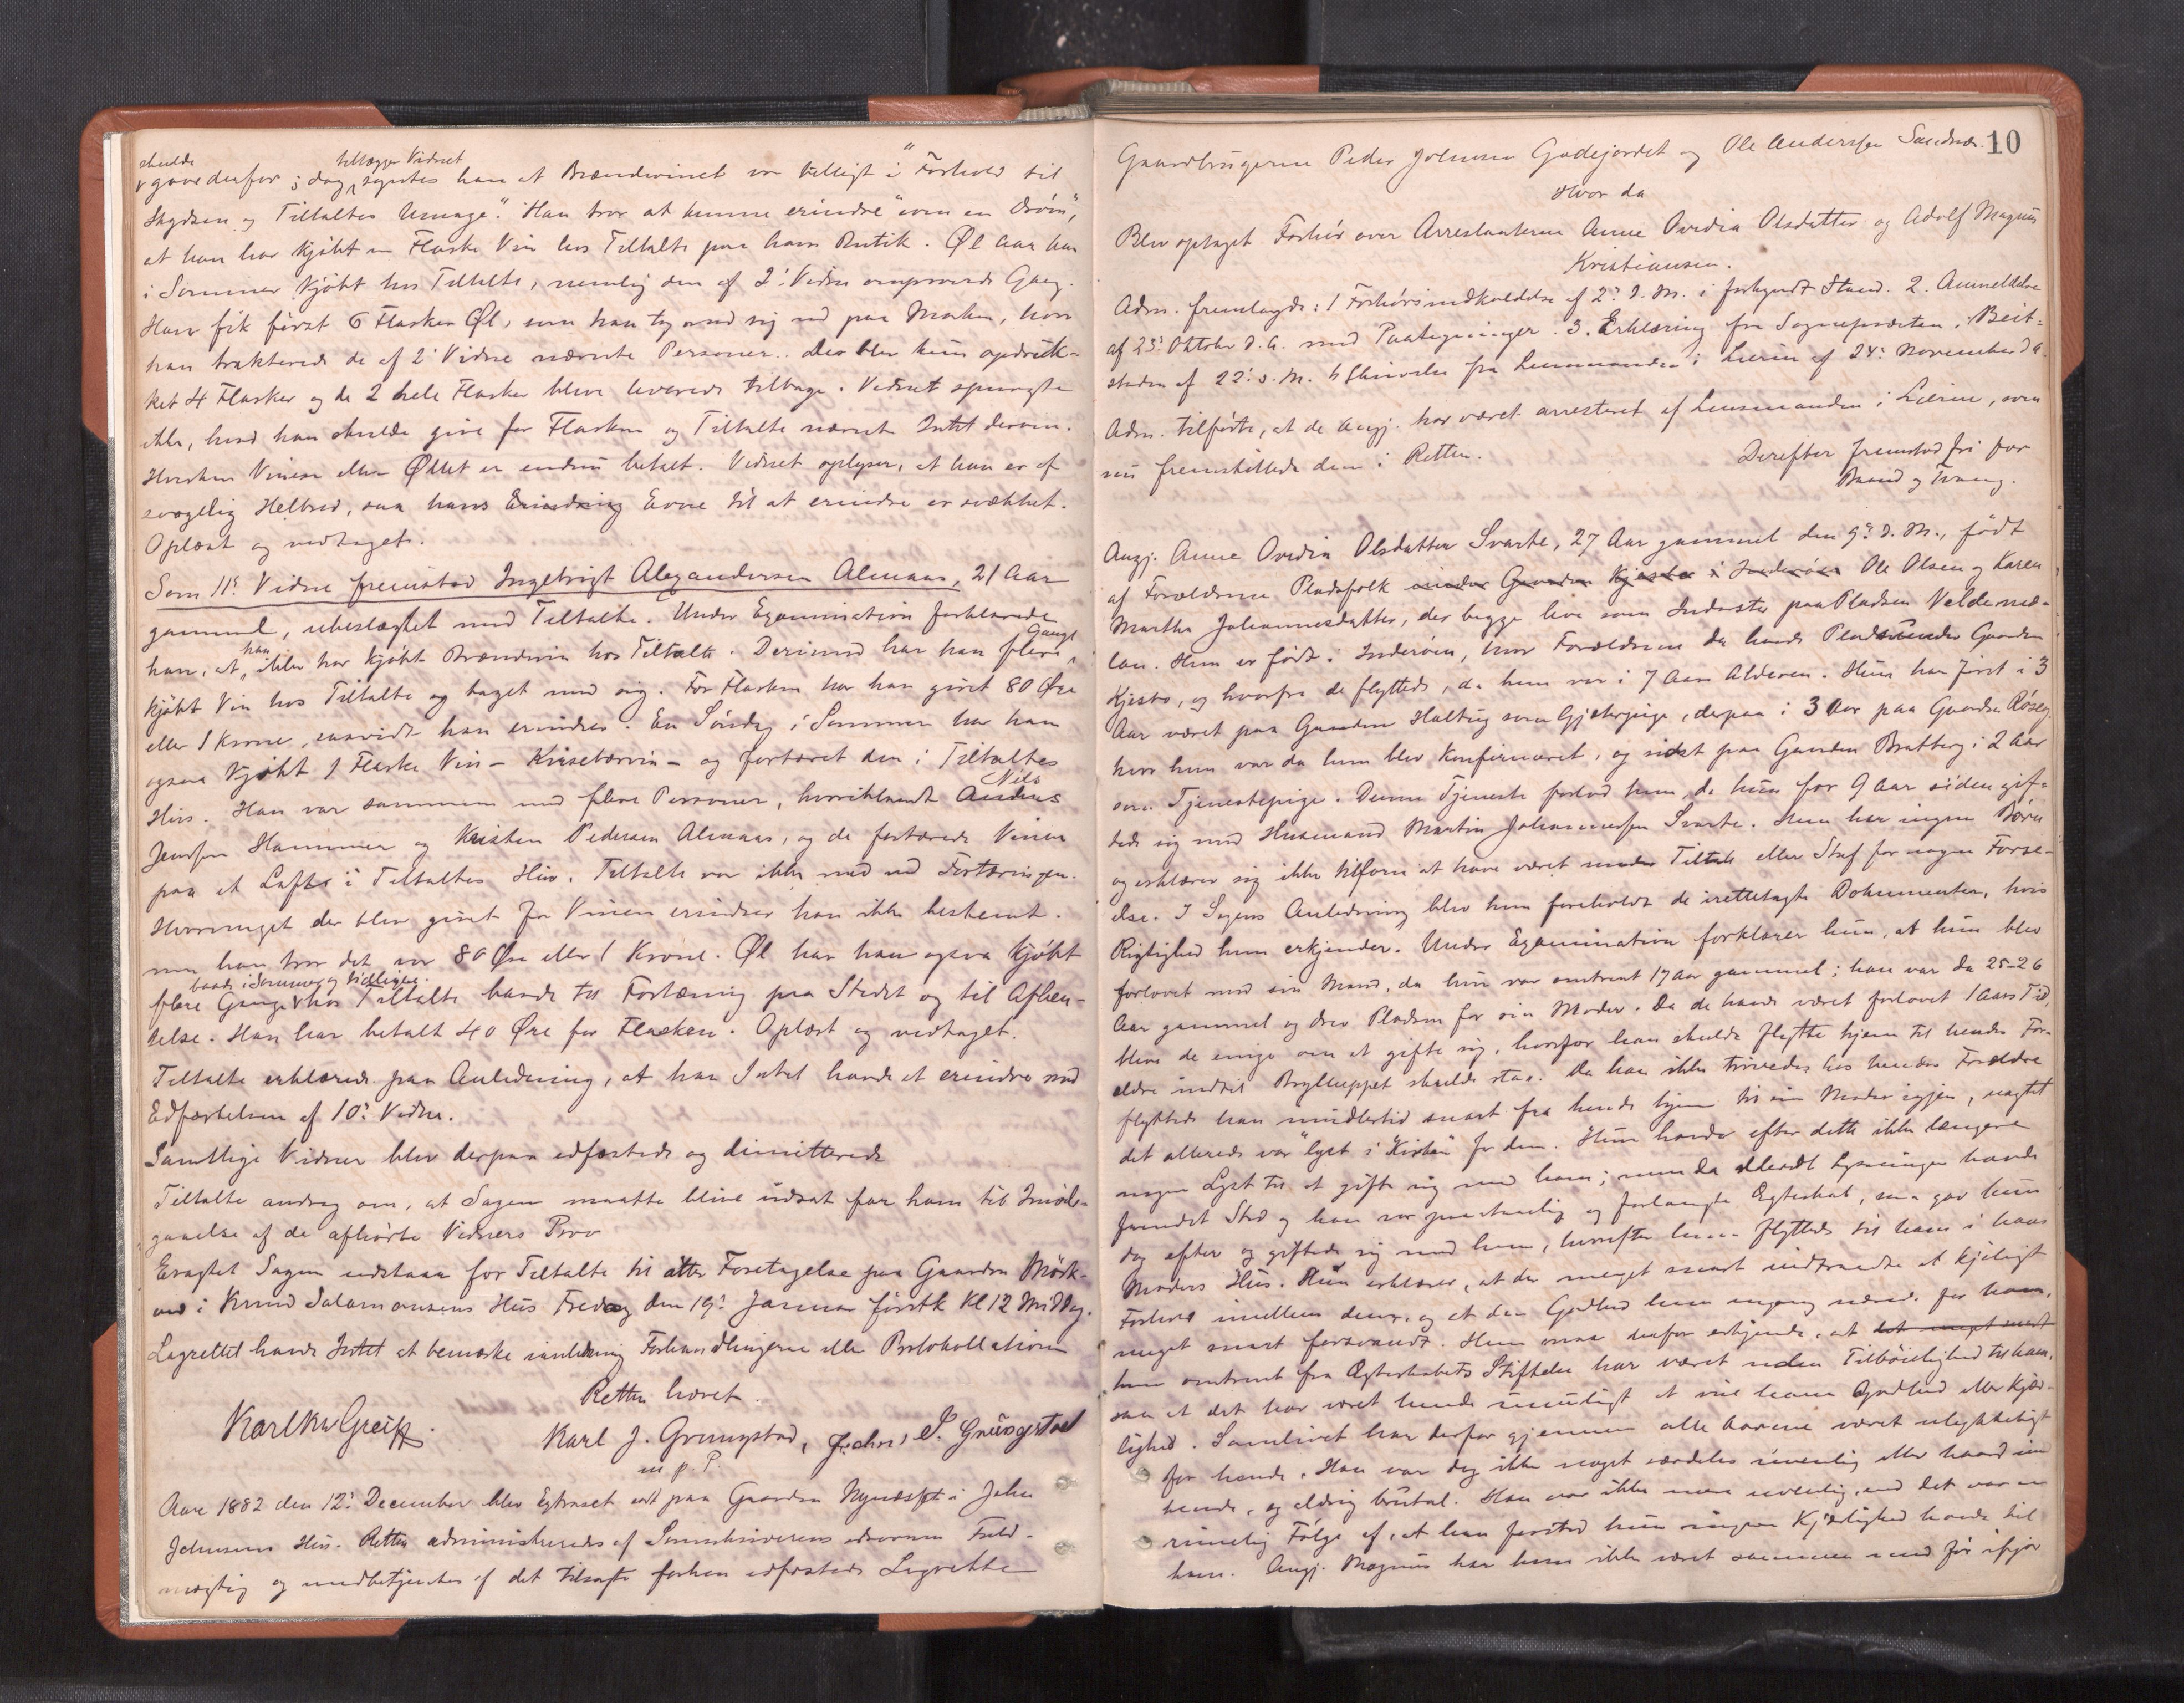 skulde
tillægger Vidnet
gave derfor; dog syntes han at Brændevinet var billigt i "Forhold til
Skydsen og Tiltaltes Umage". Han tror at kunne erindre "som en Drøm",
at han har kjøbt en Flaske Vin hos Tiltalte paa hans Butik. Øl har han
i Sommer kjøbt hos Tiltalte, nemlig den af 2' Vidne omprovede Gang.
Han fik først 6 Flasker Øl, som han tog med sig ud paa Marken, hvor
han trakterede de af 2' Vidne nævnte Personer. Der blev kun opdruk-
ket 4 Flasker og de 2 hele Flasker bleve leverede tilbage. Vidnet spurgte
ikke, hvad han skulde give for Flasken og Tiltalte nævnte Intet derom.
Hverken Vinen eller Øllet er endnu betalt. Vidnet oplyser, at han er af
svagelig Helbred, saa hans Erindring Evne til at erindre er svækket.
Oplæst og vedtaget.
Som 11' Vidne fremstod Ingebrigt Alexandersen Almaas, 21 Aar
gammel, ubeslægtet med Tiltalte. Under Examination forklarede
han, at han ikke har kjøbt Brændevin hos Tiltalte. Derimod har han flere Gange
kjøbt Vin hos Tiltalte og taget med sig. For Flasken har han givet 80 Øre
eller 1 Krone, saavidt han erindrer. En Søndag i Sommer har han
ogsaa kjøbt 1 Flaske Vin - Kirsebærvin - og fortæret den i Tiltaltes
Hus. Han var sammen med flere Personer, hvoriblandt Anders Nils
Jensen Hammer og Kristen Pedersen Almaas, og de fortærede Vinen
paa et Loft i Tiltaltes Hus. Tiltalte var ikke med ved Fortæringen.
Hvormeget der blev givet for Vinen erindrer han ikke bestemt.
men han tror det var 80 Øre eller 1 Krone. Øl har han ogsaa kjøbt
baade i Sommer og tidligere
flere Gange hos Tiltalte baade til Fortæring paa Stedet og til Afhen-
telse. Han har betalt 40 Øre for Flasken. Oplæst og vedtaget.
Tiltalte erklærede paa Anledning, at han Intet havde at erindre mod
Edfæstelsen af 10' Vidne.
Samtlige Vidner blev derpaa edfæstede og dimitterede
Tiltalte androg om, at Sagen maatte blive udsat for ham til Imøde-
gaaelse af de afhørte Vidners Prov
Eragtet Sagen udstaar for Tiltalte til atter Foretagelse paa Gaarden Mørk-
ved i Knud Salamonsens Hus Fredag den 19' Januar førstk Kl 12 Middag.
Lagrettet havde Intet at bemærke i anledning Forhandlingerne eller Protokollationen
Retten hævet.
Karl Kr Greiff.
Karl J. Grungstad, Johs. S. Grungstad
m p. P.
Aar 1882 den 12' December blev Extraret sat paa Gaarden i John
Johnsens Hus. Retten administreredes af Sorenskriverens edsvorne Fuld-
mægtig og medbetjentes af det tilsagte forhen edfæstede Lagrette
10
Gaardbrugerne Peder Johnsen Gjødejordet og Ole Andersen Sandnæs.
Hvor da
Blev optaget Forhør over Arrestanterne Anne Ovidia Olsdatter og Adolf Magnus
Kristiansen.
Adm. fremlagde: 1 Forhørsindkaldelse af 2' d. M. i forkyndt Stand. 2. Anmeldelse
af 25' Oktober d. A. med Paategninger. 3. Erklæring fra Sognepræsten i Beit-
staden af 22' d. M. 4 Skrivelse fra Lensmanden i Lierne af 24' November d A.
Adm. tilførte, at de Angj. har været arresteret af Lensmanden i Lierne, som
nu fremstillede dem i Retten.
Derefter fremstod fri for
Baand og Tvang.
Angj. Anne Ovidia Olsdatter Svarte, 27 Aar gammel den 9' d. M., født
af Forældrene Pladsfolk under Gaarden Kjesbo i Inderøen Ole Olsen og Karen
Martha Johannesdatter, der begge leve som Inderster paa Pladsen Veldemæ-
len. Hun er født i Inderøen, hvor Forældrene da havde Plads under Gaarden
Kjesbo, og hvorfra de flyttede, da hun var i 7 Aars Alderen. Hun har først i 3
Aar været paa Gaarden Haltug som Gjæterpige, derpaa i 3 Aar paa Gaarden Røseg
hvor hun var da hun blev konfirmeret, og sidst paa Gaarden Bratberg i 2 Aar
som Tjenestepige. Denne Tjeneste forlod hun, da hun for 9 Aar siden gif-
tede sig med Husmand Martin Johannesen Svarte. Hun har ingen Børn
og erklærer sig ikke tilforn at have været under Tiltale eller Straf for nogen Forse-
else. I Sagens Anledning blev hun foreholdt de irettelagte Dokumenter, hvis
Rigtighed hun erkjender. Under Examination forklarer hun, at hun blev
forlovet med sin Mand, da hun var omtrent 17 Aar gammel; han var da 25-26
Aar gammel og drev Pladsen for sin Moder. Da de havde været forlovet 1 Aars Tid,
bleve de enige om at gifte sig, hvorfor han skulde flytte hjem til hendes For-
ældre indtil Brylluppet skulde staa. Da han ikke trivedes hos hendes Forældre
flyttede han imidlertid snart fra hende hjem til sin Moder igjen, uagtet
det allerede var "lyst i Kirken" for dem. Hun havde efter dette ikke længere
nogen Lyst til at gifte sig med ham; men da allerede Lysningen havde
fundet Sted og han var paastaaelig og forlangte Egteskab, saa gav hun
dog efter og giftede sig med ham, hvorefter hun flyttede til ham i hans
Moders Hus. Hun erklærer, at der meget snart indtraadte et kjøligt
Forhold imellem dem, og at den Godhed hun engang nærede for ham,
meget snart forsvandt. Hun maa derfor erkjende, at det meget snart
hun omtrent fra Ægteskabets Stiftelse har været uden Tilbøielighed til ham,
saa at det har været hende umuligt at vise ham Godhed eller Kjær-
lighed. Samlivet har derfor gjennem alle Aarene været ulykkeligt
for hende. Han var dog ikke noget særdeles uvenlig eller haard imod
hende, og aldrig brutal. Han var ikke mere uvenlig, end det var en
rimelig Følge af, at han forstod hun ingen Kjærlighed havde til
ham. Angj. Magnus har hun ikke været sammen med før ifjor